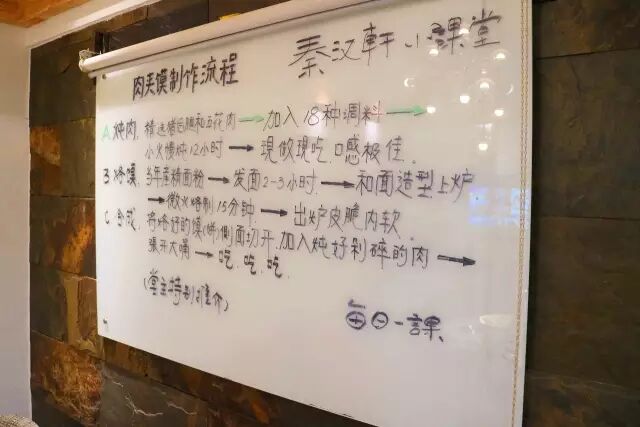 秦汉軒小課堂
肉夹馍制作流程
A.炖肉.精选猪后腿和五花肉→加入18种调料→
小火慢炖12小时→現做現吃.口感极佳.
B.烙馍.当年産精面粉→发面2-3小时.→和面造型上炉
→微火烙制15分钟→出炉皮脆内软.
C.合成.将烙好的馍(饼)侧面切开.加入炖好剁碎的肉→
張开大嘴→吃.吃.吃.
(堂主特别推介)
每日一課